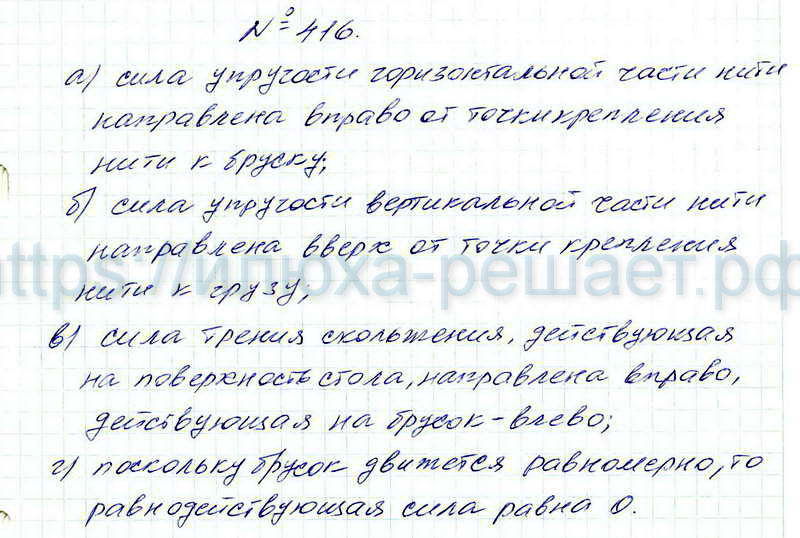 № 416.
а) сила упругости горизонтальной части нити
направлена вправо от точки крепления
нити к бруску;
б) сила упругости вертикальной части нити
направлена вверх от точки крепления
https://илюха-решает.рф
нити к грузу;
в) сила трения скольжения, действующая
на поверхность стола, направлена вправо,
действующая на брусок - влево;
г) поскольку брусок движется равномерно, то
равнодействующая сила равна 0.